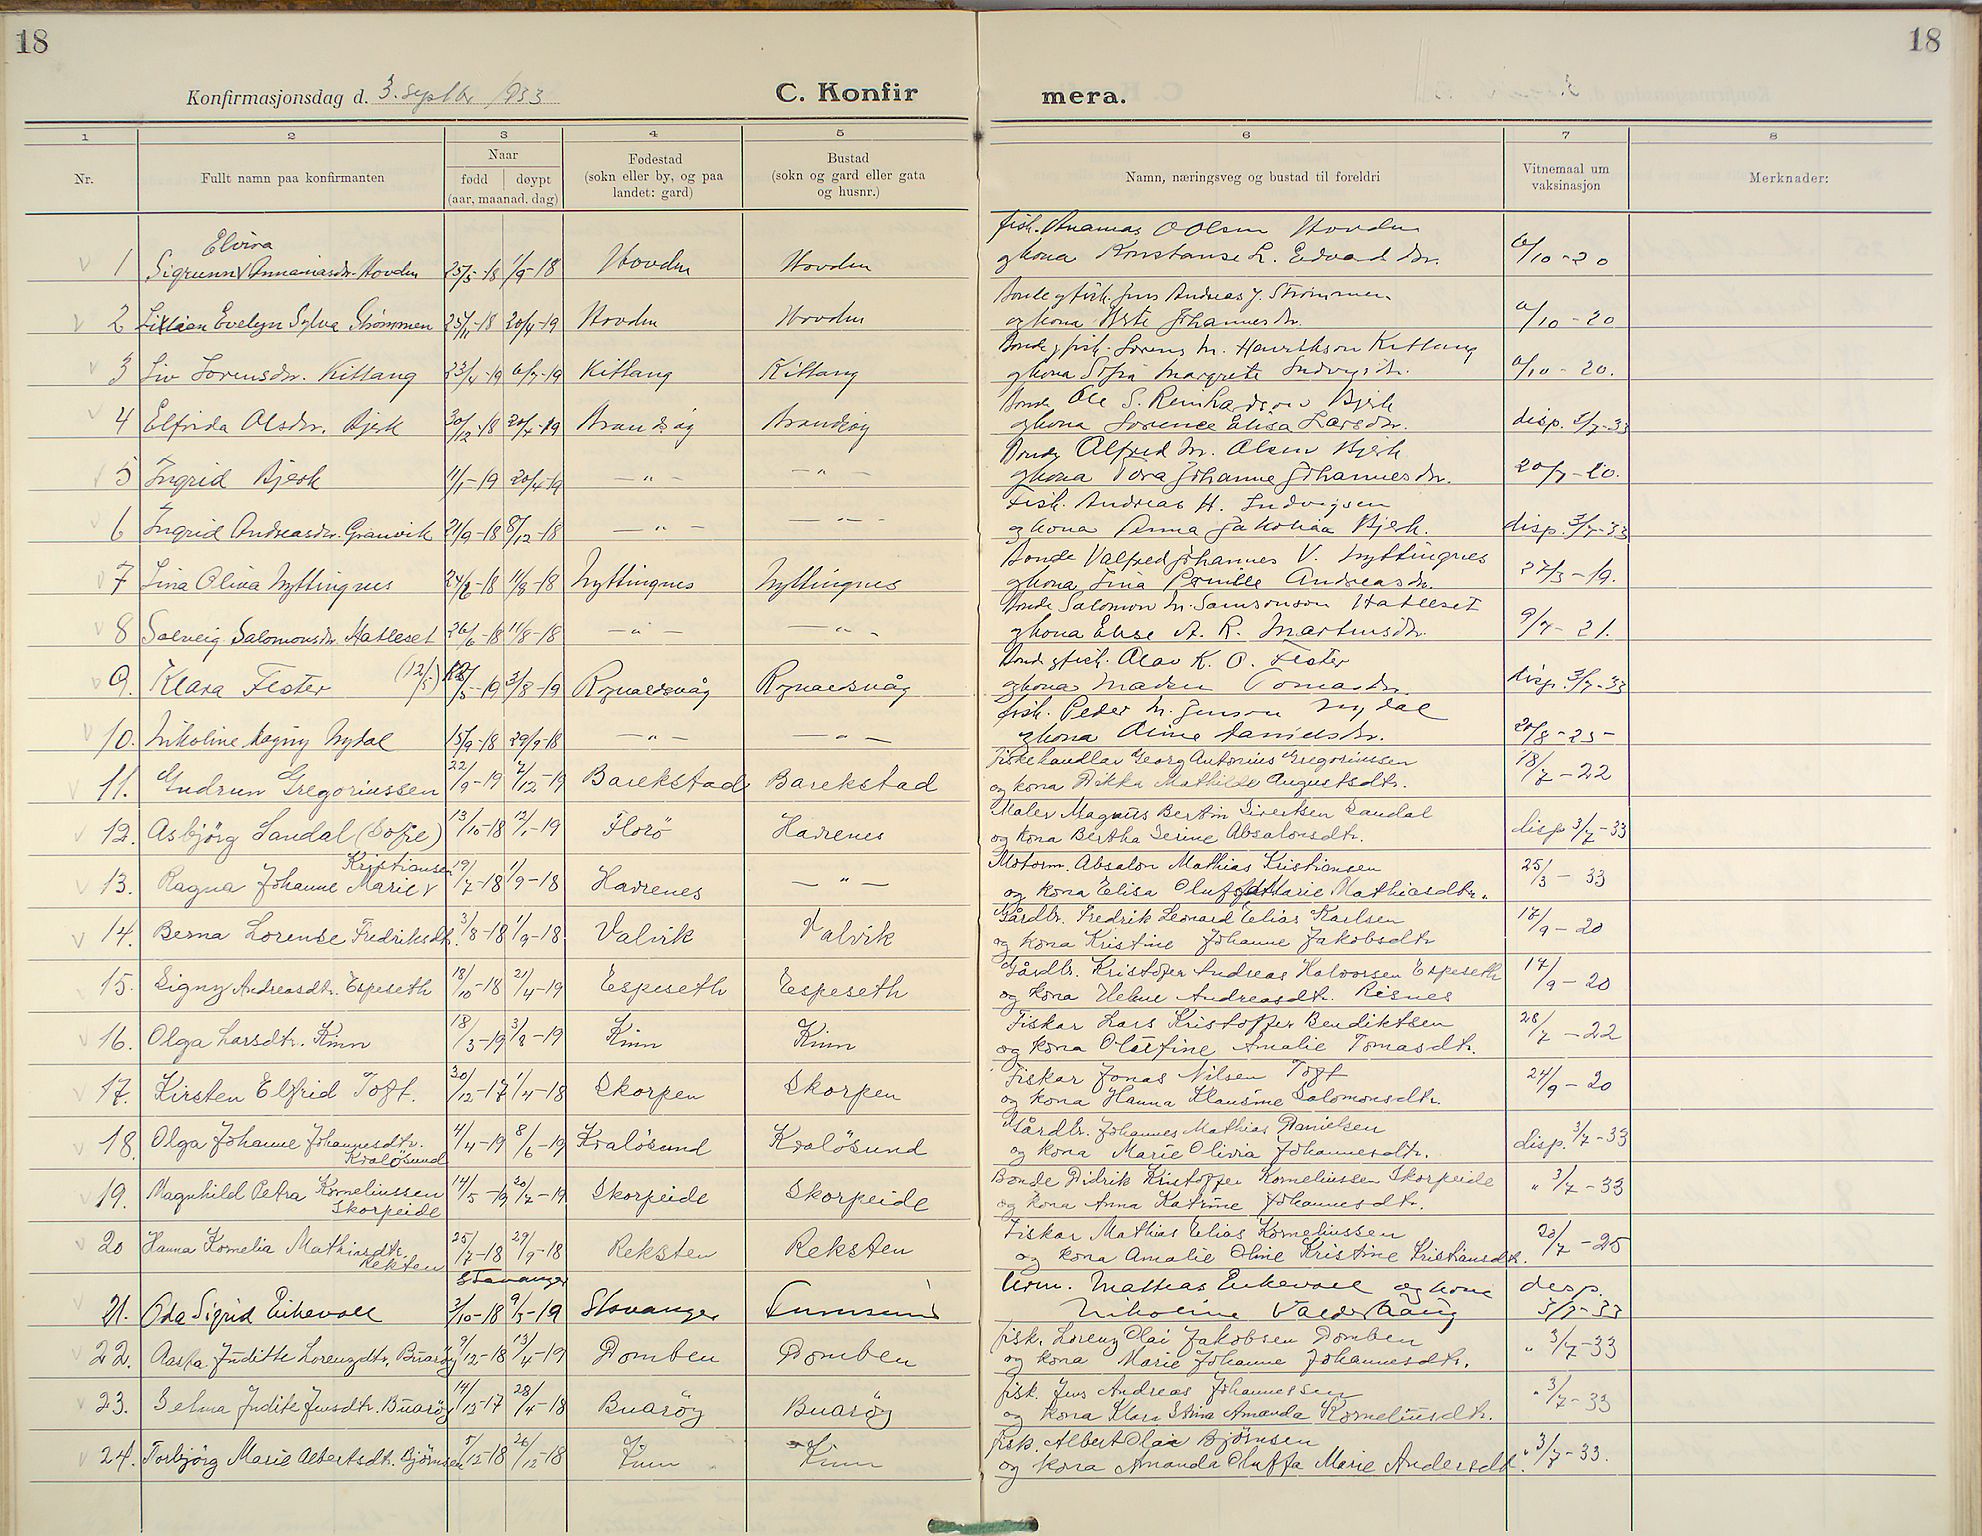 18
18
Konfirmasjonsdag d. 3. septbr 1933
C. Konfir
mera.
1 2 3 4 5 6 7 8
Nr.
Fullt namn paa konfirmanten
Naar
fødd døypt
(aar, maanad, dag)
Fødestad
(sokn eller by, og paa
landet: gard)
Bustad
(sokn og gard eller gata
og husnr.)
Namn, næringsveg og bustad til foreldri
Vitnemaal um
vaksinasjon
Merknader:
Elvira fisk. Ananias O Olsen Hovden
1 Sigrunn Annaniasdr. Hovden 25/5-18 1/9-18 Hovden Hovden og kona Konstanse L. Edvardsdr. 6/10-20
Bonde og fisk. Jens Andreas J. Strømmen
2 Lillian Evelyn Sylva Strømmen 25/11-18 20/4-19 Hovden Hovden og kona Johannesdr. 6/10-20
Bonde og fisk. Lorens M. Henrikson Kittang
3 Liv Lorensdr. Kittang 23/4-19 6/7-19 Kittang Kittang og kona Sofia Margrete Ludvigsdr. 6/10-20.
Bonde Ole S. Reinhardson Bjerk
4 Elfrida Olsdr. Bjerk 30/12-18 20/4-19 Brandsøy Brandsøy og kona Lorence Elisa Larsdr. disp. 3/7-33
Bonde Alfred M. Olsen Bjerk
5 Ingrid Bjerk 11/1-19 20/4-19 — " — — " — og kona Tora Johanne Johannesdr. 20/7-20.
Fisk. Andreas H. Ludvigsen
6 Ingrid Andreasdr. Granvik 21/9-18 8/12-18 — " — — " — og kona Anna Jakobina Bjerk. disp. 3/7-33
Bonde Valfred Johannes V. Nyttingnes
7 Lina Oliva Nyttingnes 24/6-18 11/8-18 Nyttingnes Nyttingnes og kona Lina Pernille Andreasdr. 27/3-19.
Bonde Salomon M. Samsonson Hatleset
8 Solveig Salomonsdr. Hatleset 26/6-18 11/8-18 — " — — " — og kona Elise A. R. Martinsdr. 9/7-21.
Bonde og fisk. Olav K. O. Fester
9. Klara Fester (12/5) 12/5-19 3/8-19 Rognaldsvåg Rognaldsvåg og kona Madsu Tomasdr. disp. 3/7-33
fisk. Peder M. Jenson Nydal
10. Nikoline Magny Nydal 15/9-18 29/9-18 — " — — " — og kona Danielsdr. 20/8-25
Fiskehandlar Georg Antonius Gregoriussen
11. Gudrun Gregoriussen 22/9-19 7/12-19 Barekstad Barekstad og kona Rikka Mathilde Augustsdtr. 18/7-22
Maler Magnus Bertin Sivertsen Sandal
12. Asbjörg Sandal (Sofie) 13/10-18 12/1-19 Florö Havrenes og kona Bertha Serine Absalonsdtr. disp 3/7-33
Kristiansen Motorm. Absalon Mathias Kristiansen
13. Ragna Johanne Marie 19/7-18 1/9-18 Havrenes — " — og kona Elisa Olufine Marie Mathiasdtr. 25/3-33
Gårdbr. Fredrik Leonard Elias Karlsen
14. Berna Lorense Fredriksdtr. 3/8-18 1/9-18 Valvik Valvik og kona Kristine Johanne Jakobsdtr 17/9-20
Gårdbr. Kristofer Andreas Halvorsen Espeseth
15. Signy Andreasdtr. Espeseth 18/10-18 21/4-19 Espeseth Espeseth og kona Helene Andreasdtr. Risnes 17/9-20
Fiskar Lars Kristoffer Bendiktsen
16. Olga Larsdtr. Kinn 18/3-19 3/8-19 Kinn Kinn og kona Olufine Amalie Tomasdtr. 28/7-22
Fiskar Jonas Nilsen Toft
17. Kirsten Elfrid Toft. 30/12-17 1/4-18 Skorpen Skorpen og kona Hanna Klausine Salomonsdtr. 24/9-20
Gårdbr. Johannes Mathias Danielsen
18. Olga Johanne Johannesdtr. 4/4-19 8/6-19 Kvalösund Kvalösund og kona Marie Olivia Johannesdtr. disp. 3/7-33
Kvalösund
Bonde Didrik Kristoffer Korneliussen Skorpeide
19. Magnhild Petra Korneliussen 14/5-19 20/7-19 Skorpeide Skorpeide og kona Anna Katrine Johannesdtr. " 3/7-33
Skorpeide
Fiskar Mathias Elias Korneliussen
20 Hanna Kornelia Mathiasdtr. 25/7-18 29/9-18 Reksten Reksten og kona Amalie Oline Kristine Kristiansdtr. 20/7-25
Rekten
Stavanger
Urm. Mathias Eikevoll og kona desp.
21. Oda Sigrid Eikevoll 3/10-18 9/3-19 Stavanger Nikoline Valderhaug 5/7-33
fisk. Lorenz Olai Jakobsen Domben
22. Aasta Juditte Lorenzdtr. Buaröy 9/12-18 13/4-19 Domben Domben og kona Marie Johanne Johannesdtr. " 3/7-33
fisk. Jens Andreas Johannessen
23. Selma Judite Jensdtr. Buaröy 14/12-17 28/4-18 Buaröy Buaröy og kona Klara Stina Amanda Korneliusdtr. " 3/7-33
fisk. Albert Olai Bjørnsen
24. Torbjörg Marie Albertsdt. Björnsen 5/12-18 26/12-18 Kinn Kinn og kona Amanda Oluffa Marie Andersdtr. " 3/7-33.